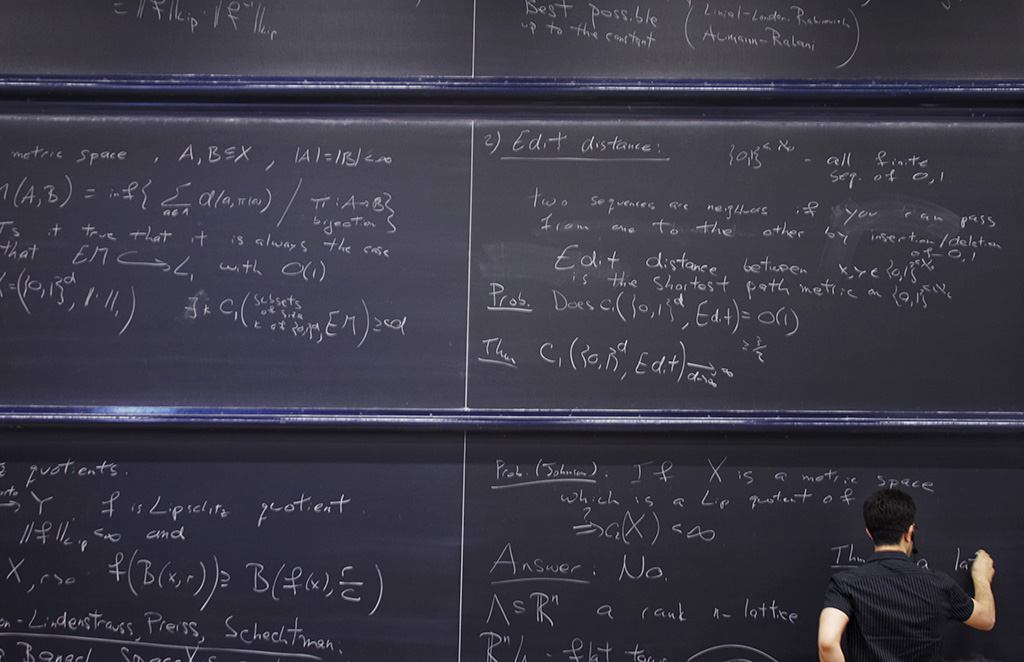 = ||f||Lip · ||f⁻¹||Lip
Best possible
up to the constant
(Linial-London-Rabinovich
Aumann-Rabani)
metric space, A,B⊆X, |A|=|B|<∞
(A,B) = inf{ Σ a∈A d(a,π(a)) / π: A→B bijection }
Is it true that it is always the case
that EM ↪ L₁ with O(1)
=({0,1}ᵈ, ||·||₁)
∃k C₁(subsets of size k of {0,1}ᵈ, EM) ≥ cd
2) Edit distance:
{0,1}^<ℵ₀ - all finite
seq. of 0,1
two sequences are neighbors if you can pass
from one to the other by insertion/deletion
of 0,1
Edit distance between x,y∈{0,1}^<ℵ₀
is the shortest path metric on {0,1}^<ℵ₀
Prob. Does C₁({0,1}ᵈ, Edit) = O(1)
≥ 3/2
Thm C₁({0,1}ᵈ, Edit) → d→∞ ∞
quotients.
→ Y f is Lipschitz quotient
||f||Lip < ∞ and
X, r>0 f(B(x,r)) ⊇ B(f(x), r/c)
Lindenstrauss, Preiss, Schechtman.
Banach Spaces
Prob. (Johnson). If X is a metric space
which is a Lip quotient of
⇒? C₂(X) < ∞
Answer. No.
Λ⊆ℝⁿ a rank n-lattice
ℝⁿ/Λ - flat torus
Thm a lat